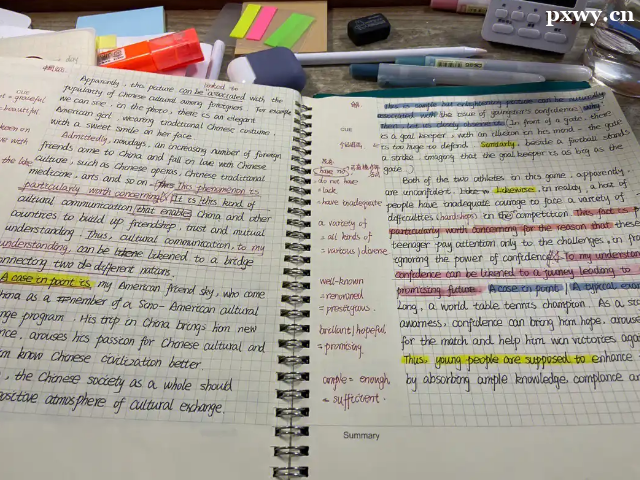 pxwy.cn
linked to
Apparently, this picture can be associated with the
popularity of Chinese cultural among foreigners. For example
we can see, in the photo, there is an elegant
American girl, wearing traditional Chinese costume
with a sweet smile on her face.
Admittedly, nowadays, an increasing number of foreign
friends come to China and fall in love with Chinese
culture, such as Chinese operas, Chinese traditional
medicine, arts and so on. This phenomenon is
particularly worth concerning. It is this kind of
cultural communication that enables China and other
countries to build up friendship, trust and mutual
understanding. Thus, cultural communication, to my
understanding, can be likened to a bridge
connecting two different nations.
A case in point is, my American friend Sky, who come
China as a member of a Sino-American cultural
program. His trip in China brings him new
arouses his passion for Chinese cultural and
know Chinese civilization better.
, the Chinese society as a whole should
positive atmosphere of cultural exchange.
cue
= graceful
beautiful
the like
cue
have no
do not have
= lack
= have inadequate
a variety of
= all kinds of
= various / diverse
well-known
= renowned
= prestigious.
brilliant / hopeful
= promising
ample = enough
= sufficient.
associated with the issue of youngster's confidence,
In front of a gate, there
is a goal keeper, with an illusion in his mind - the goal
is too huge to defend. Similarly, beside a football stands
a strike, imagining that the goal keeper is as big as the
gate.
Both of the two athletes in this game, apparently,
are unconfident. Likewise, in reality, a host of
people have inadequate courage to face a variety of
difficulties (hardships) in the competition. This fact is
particularly worth concerning for the reason that these
teenager pay attention only to the challenges, in
ignoring the power of confidence. To my understanding
confidence can be likened to a journey leading to
promising future. A case in point / A typical
Long, a world table tennis champion. As a
awareness, confidence can bring him hope, arouse
for the match and help him win victories
Thus, young people are supposed to enhance
by absorbing ample knowledge,
Summary